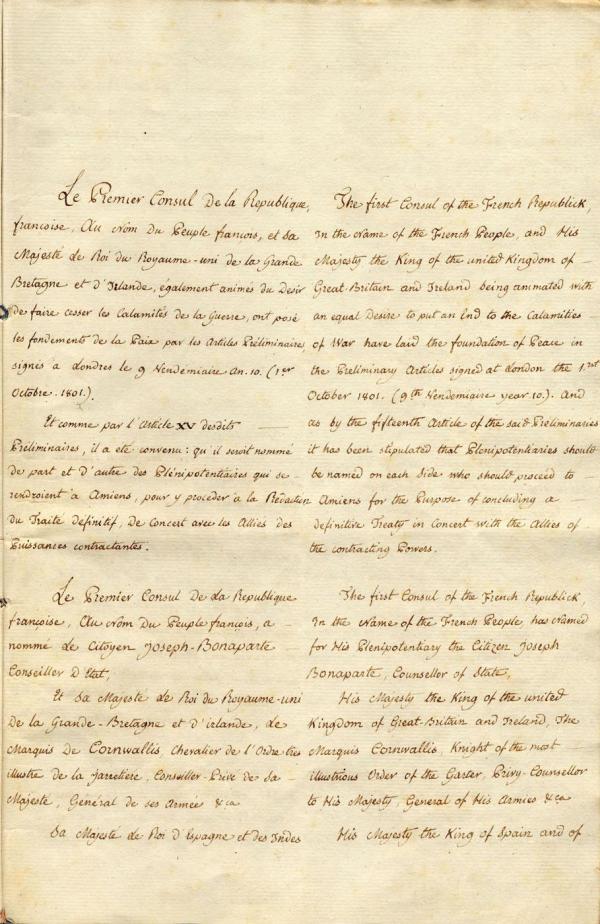 Le Premier Consul De la Republique,
françoise, Au Nom Du Peuple françois, et Sa
Majesté Le Roi du Royaume-uni de la Grande
Bretagne et d'Irlande, également animés du Desir
de faire cesser les Calamités de la Guerre, ont posé
les fondements de la Paix par les Articles Préliminaires
signés à Londres le 9 Vendemiaire An. 10. (1er
Octobre. 1801.).
Et comme par l'Article XV desdits
Préliminaires, il a eté convenu: qu'il seroit nommé
de part et d'autre des Plénipotentiaires qui se
rendroient à Amiens, pour y procéder à la Rédaction
du Traité définitif, De Concert avec les Alliés des
Puissances contractantes.
Le Premier Consul De La Republique
françoise, Au Nom Du Peuple françois, a
nommé Le Citoyen Joseph-Bonaparte
Conseiller D'Etat,
Et Sa Majesté Le Roi du Royaume-uni
De la Grande-Bretagne et d'irlande, Le
Marquis De Cornwallis, Chevalier de l'Ordre très
illustre de la Jarretière, Conseiller-Privé de Sa
Majesté, Général de ses Armées &ca
Sa Majesté Le Roi d'Espagne et des Indes
The first Consul of the French Republick,
In the Name of the French People, and His
Majesty the King of the united Kingdom of
Great-Britain and Ireland being animated with
an equal Desire to put an End to the Calamities
of War have laid the foundation of Peace in
the Preliminary Articles signed at London the 1.rst
October 1801. (9th Vendemiaire year 10.). And
as by the fifteenth Article of the said Preliminaries
it has been stipulated that Plenipotentiaries should
be named on each Side who should proceed to
Amiens for the Purpose of concluding a
definitive Treaty in Concert with the Allies of
the contracting Powers.
The first Consul of the French Republick,
In the Name of the French People, has Named
for His Plenipotentiary the Citizen Joseph
Bonaparte, Counsellor of State,
His Majesty the King of the united
Kingdom of Great-Britain and Ireland, The
Marquis Cornwallis, Knight of the most
illustrious Order of the Garter, Privy-Counsellor
to His Majesty, General of His Armies &ca
His Majesty the King of Spain and of